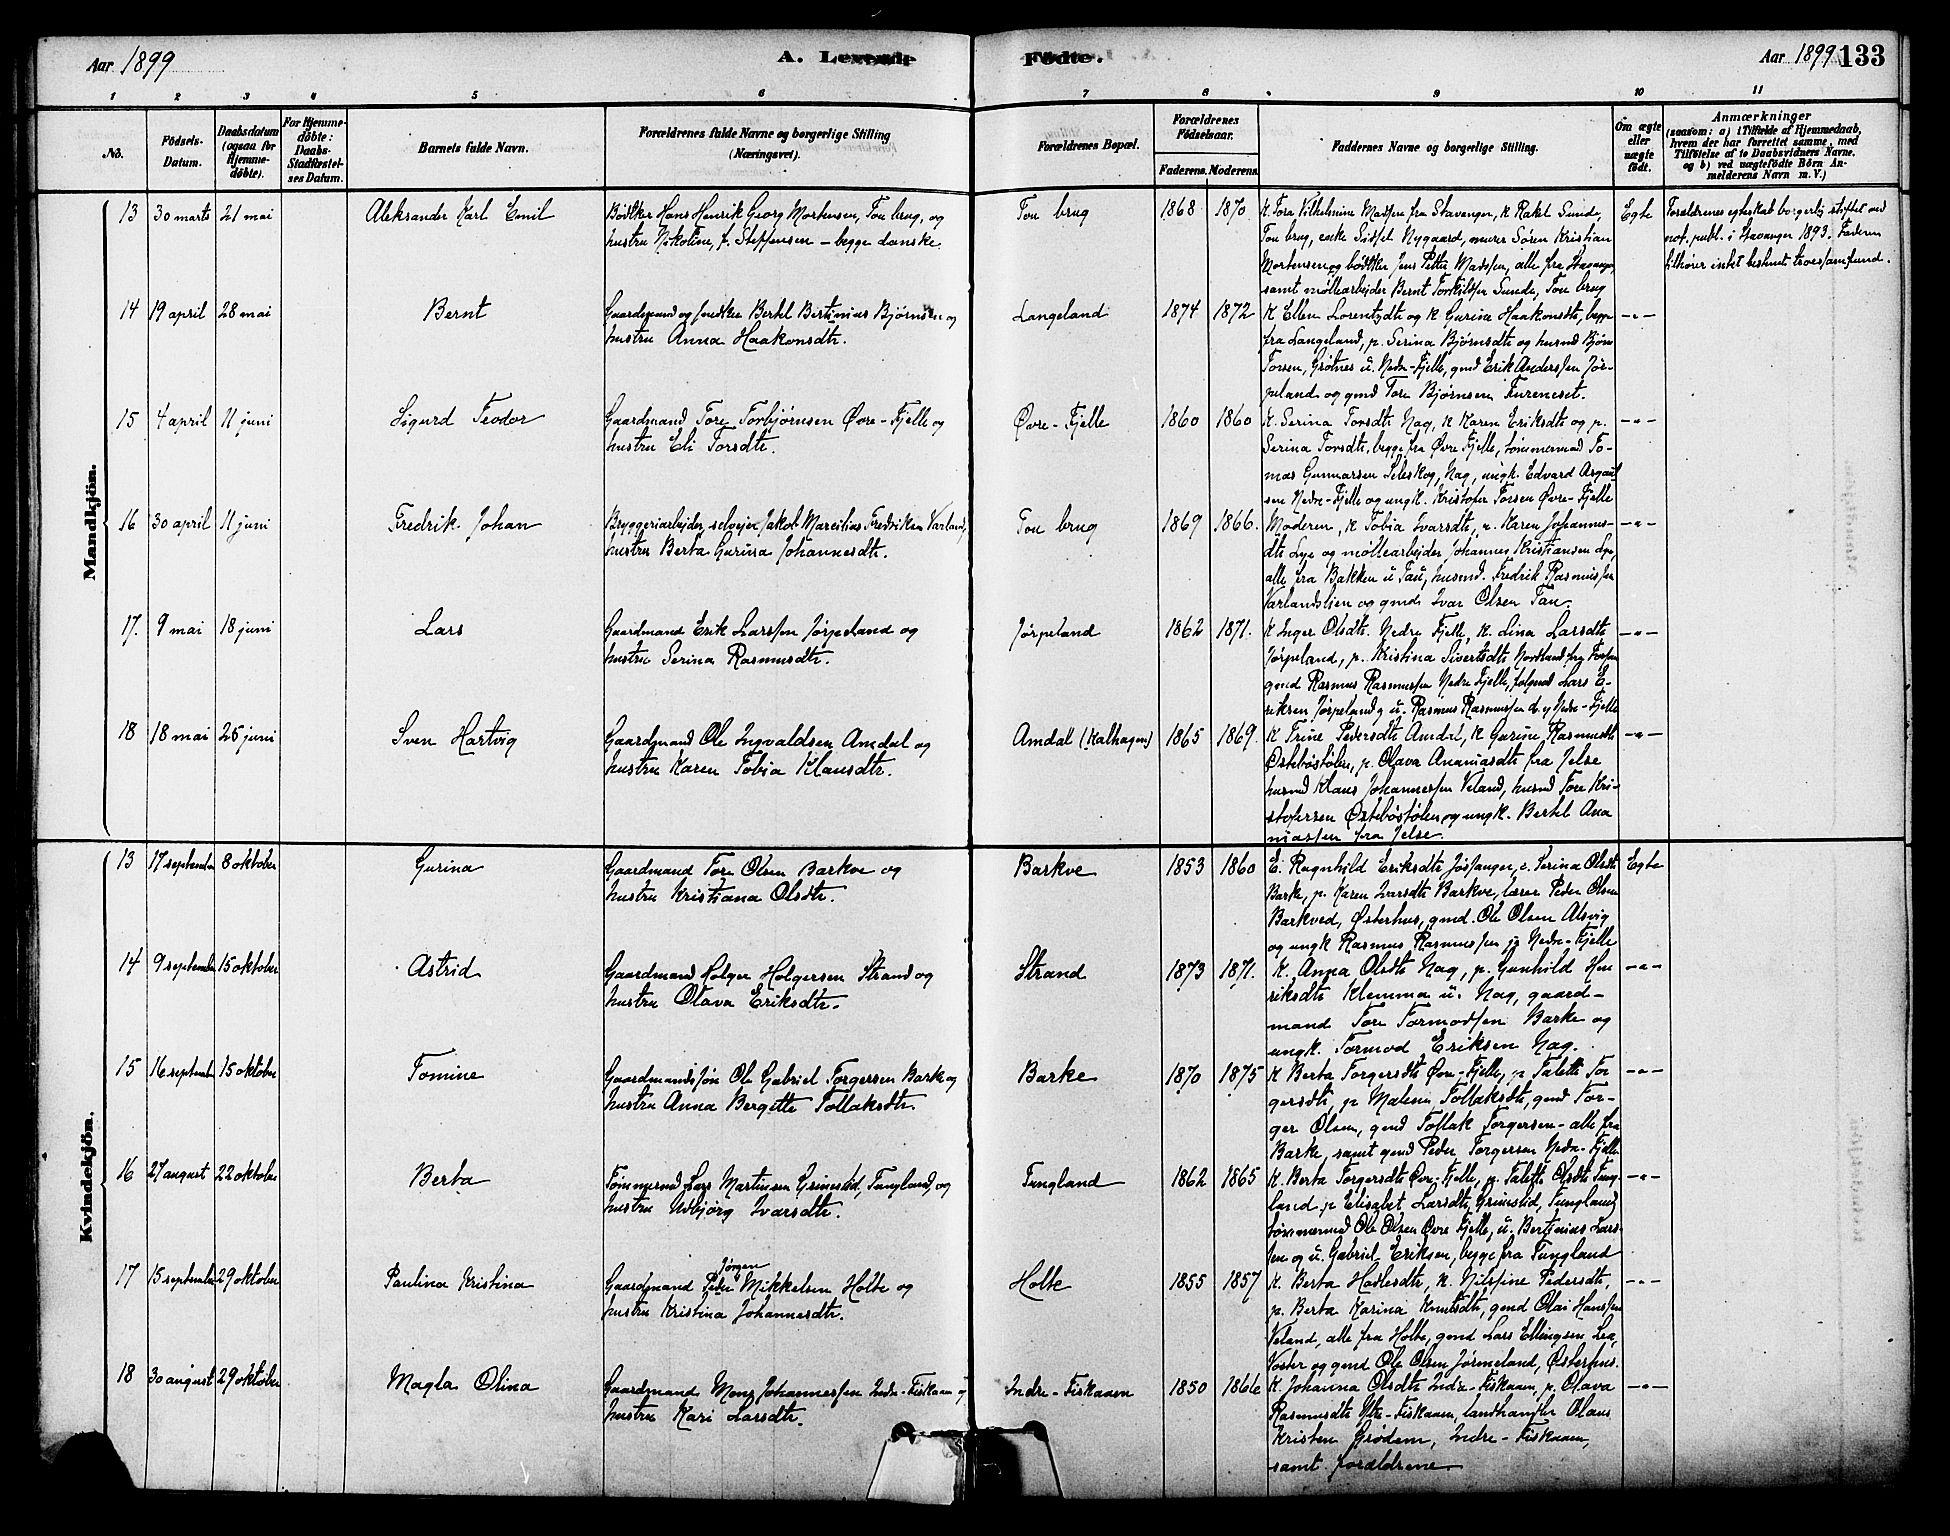 Aar 1899
A. Levende
Fødte.
Aar 1899
133
1 2 3 4 5 6 7 8 9 10 11
No.
Fødsels-
Datum.
Daabsdatum
(ogsaa for
Hjemme-
døbte).
For Hjemme-
døbte:
Daabs-
Stadfæstel-
ses Datum.
Barnets fulde Navn.
Forældrenes fulde Navne og borgerlige Stilling
(Næringsvei).
Forældrenes Bopæl.
Forældrenes
Fødselsaar.
Faderens. Moderens.
Faddernes Navne og borgerlige Stilling.
Om ægte
eller
uægte
født.
Anmærkninger
(saasom: a) i Tilfælde af Hjemmedaab,
hvem der har forrettet samme, med
Tilføielse af to Daabsvidners Navne,
og b) ved uægtefødte Børn An-
melderens Navn m. V.)
Mandkjön.
13 30 marts 21 mai Aleksander Karl Emil
Bødker Hans Henrik Georg Mortensen, Tou brug, og
hustru Nikoline, f. Steffensen – begge danske.
Tou brug 1868 1870
K. Tora Vilhelmine Madsen fra Stavanger, K. Rakel Sunde,
Tou brug, enke Sidsel Nygaard, murer Søren Kristian
Mortensen og bødker Jens Petter Madsen, alle fra Stavanger,
samt møllearbejder Bernt Torkildsen Sunde, Tou brug
Egte
Forældrenes egteskab borgerlig stiftet ved
not. publ. i Stavanger 1893. Faderen
tilhører intet bestemt trossamfund.
14 19 april 28 mai Bernt
Gaardmand og snedker Bertel Bertinius Bjørnsen og
hustru Anna Haakonsdtr.
Langeland 1874 1872
K. Ellen Lorentzdtr og K. Gurine Haakonsdtr, begge
fra Langeland, p. Serina Bjørnsdtr og husmd Bjørn
Torsen, Grøtnes u. Nedre-Fjelle, gmd Erik Anderssen Jør-
peland og gmd Tore Bjørnsen Fureneset.
–"–
15 4 april 11 juni Sigurd Teodor
Gaardmand Tore Torbjørnsen Øvre-Fjelle og
hustru Eli Torsdtr.
Øvre-Fjelle 1860 1860
K. Serina Torsdtr Nag, K Karen Eriksdtr og p.
Serina Torsdtr, begge fra Øvre Fjelle, tømmermand To-
mas Gunnarsen Seleskog, Nag, ungk. Edvard Asgaut-
sen Nedre-Fjelle og ungk. Kristofer Torsen Øvre-Fjelle
–"–
16 30 april 11 juni Fredrik Johan
Bryggeriarbejder, selvejer Jakob Marcilius Fredriksen Varland,
hustru Berta Gurina Johannesdtr.
Tou brug 1869 1866.
Moderen, K Tobia Ivarsdtr, u. Karen Johannes-
dtr Lye og møllearbejder Johannes Kristiansen Lye,
alle fra Bakken u. Tau, husmd. Fredrik Rasmussen
Varlandslien og gmd. Ivar Olsen Tau.
–"–
17. 9 mai 18 juni Lars
Gaardmand Erik Larssen Jørpeland og
hustru Serina Rasmusdtr.
Jørpeland 1862 1871.
K Inger Olsdtr. Nedre Fjelle, K. Lina Larsdtr
Jørpeland, p. Kristina Sivertsdtr Nordland fra Fossan
gmd Rasmus Rasmussen Nedre Fjelle, følgmd Lars E-
riksen Jørpeland og u. Rasmus Rasmussen d. y Nedre-Fjelle
–"–
18 18 mai 25 juni Sven Hartvig
Gaardmand Ole Ingvaldsen Amdal og
hustru Karen Tobia Klausdtr.
Amdal (Kalhagen) 1865 1869.
K Trine Pedersdtr Amdal, K Gurine Rasmusdtr
Østebøstølen, p. Olava Ananiasdtr fra Jelse
husmd Klaus Johannessen Veland, husmd Tore Kri-
stofersen Østebøstølen og ungk. Bertel Ana
niassen fra Jelse.
–"–
Kvindekjön.
13 17 september 8 oktober Gurina
Gaardmand Tore Olsen Barkve og
hustru Kristiana Olsdtr.
Barkve 1853 1860
E. Ragnhild Eriksdtr Jøssanger, e. Serina Olsdtr
Barke, p. Karen Ivarsdtr Barkve, lærer Peder Olsen
Barkved, Østerhus, gmd. Ole Olsen Alsvig
og ungk Rasmus Rasmussen jr Nedre-Fjelle
Egte
14 9 september 15 oktober Astrid
Gaardmand Holger Holgersen Strand og
hustru Olava Eriksdtr.
Strand 1873 1871.
K. Anna Olsdtr Nag, p. Gunhild Hen
riksdtr Klemma u. Nag, gaard-
mand Tore Tormodsen Barke og
ungk. Tormod Eriksen Nag.
–"–
15 16 september 15 oktober Tomine
Gaardmandssøn Ole Gabriel Torgersen Barke og
hustru Anna Bergitte Tollaksdtr.
Barke 1870 1875
K Berta Torgersdtr Øvre-Fjelle, p Talette Tor
gersdtr, p Malene Tollaksdtr, gmd Tor-
ger Olsen, gmd Tollak Torgersen – alle fra
Barke, samt gmd Peder Torgersen Nedre-Fjelle
–"–
16 27 august 22 oktober Berta
Tømmermd Lars Martinsen Grimslid, Tungland, og
hustru Udbjørg Ivarsdtr.
Tungland 1862 1865
K. Berta Torgersdtr Øvre-Fjelle, p. Talette Olsdtr Tung
land, p Elisabet Larsdtr, Grimslid, Tungland,
tømmermd Ole Olsen Øvre Fjelle, u. Bertinius Lars-
sen og u. Gabriel Eriksen, begge fra Tungland
–"–
17 15 september 29 oktober Paulina Kristina
Jørgen
Gaardmand Peder Mikkelsen Holte og
hustru Kristina Johannesdtr.
Holte 1855 1857
K. Berta Hadlesdtr, K. Nilsine Pedersdtr,
p. Berta Karina Knutsdtr, gmd Olai Hanssen
Veland, alle fra Holte, gmd Lars Ellingsen Lea,
Voster og gmd Ole Olsen Jørmeland, Østerhus.
–"–
18 30 august 29 oktober Magla Olina
Gaardmand Mons Johannessen Indre-Fiskaaen og
hustru Kari Larsdtr.
Indre-Fiskaaen 1850 1866
K. Johanna Olsdtr Indre-Fiskaaen, p. Olava
Rasmusdtr Ytre-Fiskaaen, landhandler Olaus
Kristen Grødem, Indre-Fiskaaen,
samt forældrene.
–"–